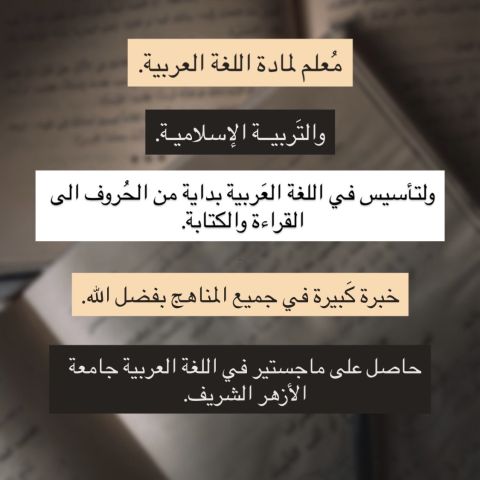 مُعلم لمادة اللغة العربية.
والتَربيــة الإسلاميـة.
ولتأسيس في اللغة العَربية بداية من الحُروف الى
القراءة والكتابة.
خبرة كَبيرة في جميع المناهج بفضل الله.
حاصل على ماجستير في اللغة العربية جامعة
الأزهر الشريف.